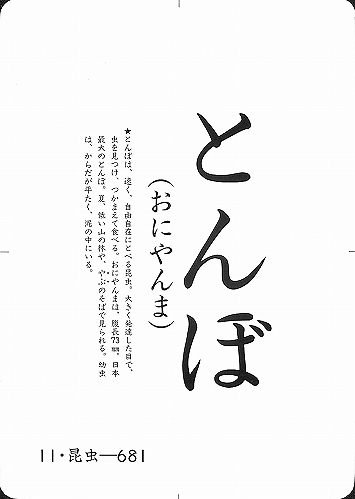 とんぼ
(おにやんま)
★とんぼは、速く、自由自在にとべる昆虫。大きく発達した目で、
虫を見つけ、つかまえて食べる。おにやんまは、腹長73㎜。日本
最大のとんぼ。夏、低い山の林や、やぶのそばで見られる。幼虫
は、からだが平たく、泥の中にいる。
11・昆虫—681